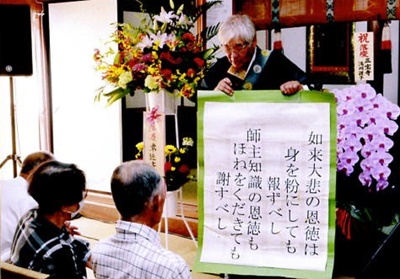 如来大悲の恩徳は
身を粉にしても
報ずべし
師主知識の恩徳も
ほねをくだきても
謝すべし
祝落慶